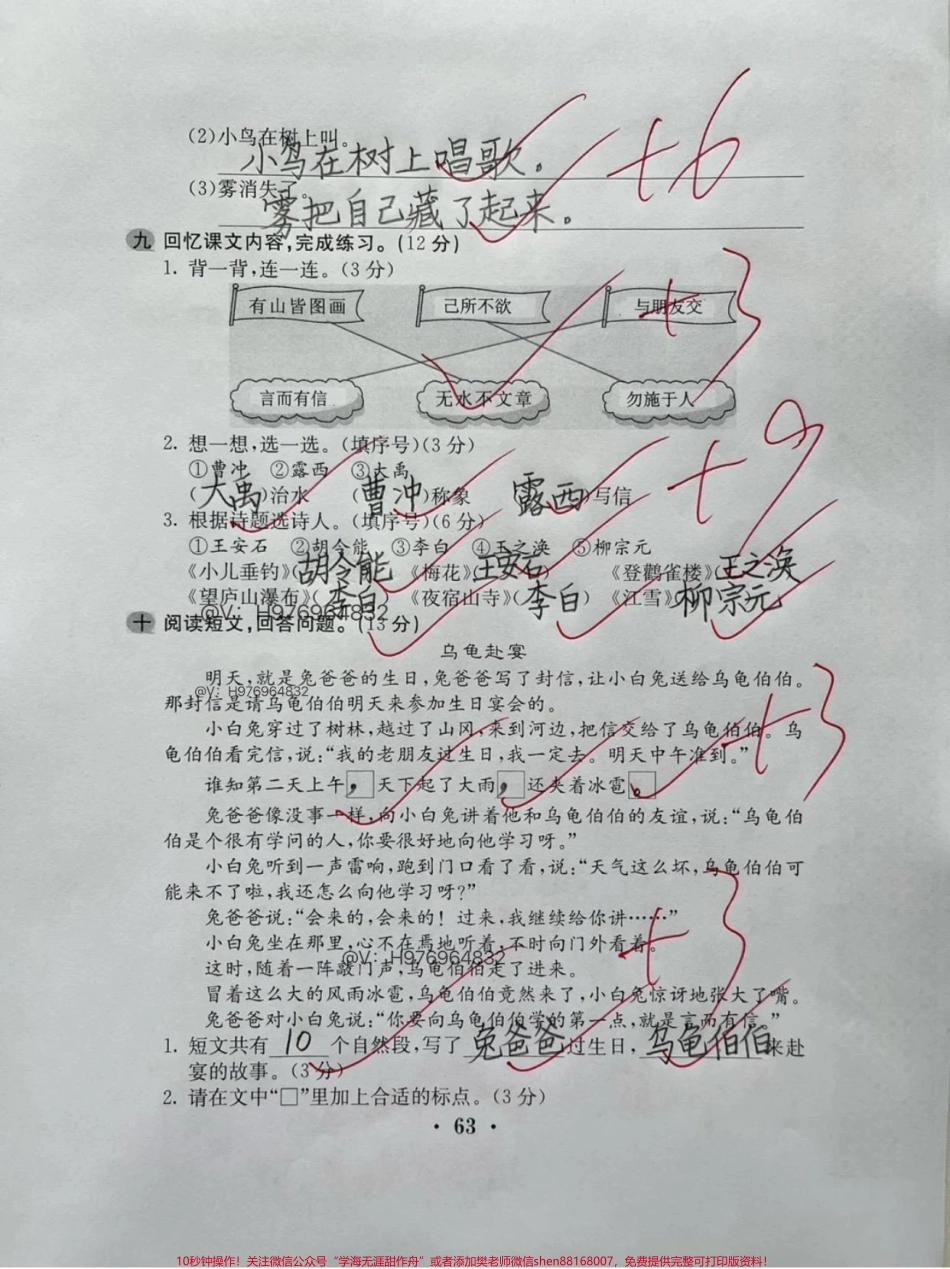 (2)小鸟在树上叫。
小鸟在树上唱歌。
+6
(3)雾消失了。
雾把自己藏了起来。
九 回忆课文内容,完成练习。(12分)
1. 背一背,连一连。(3分)
+3
有山皆图画 己所不欲 与朋友交
言而有信 无水不文章 勿施于人
2. 想一想,选一选。(填序号)(3分)
+9
①曹冲 ②露西 ③大禹
(大禹)治水 (曹冲)称象 露西)写信
3. 根据诗题选诗人。(填序号)(6分)
①王安石 ②胡令能 ③李白 ④王之涣 ⑤柳宗元
《小儿垂钓》(胡令能 《梅花》(王安石) 《登鹳雀楼》(王之涣
《望庐山瀑布》(李白) 《夜宿山寺》(李白) 《江雪》(柳宗元
@V: H976964832
十 阅读短文,回答问题。(13分)
乌龟赴宴
明天,就是兔爸爸的生日,兔爸爸写了封信,让小白兔送给乌龟伯伯。
@V: H976964832
那封信是请乌龟伯伯明天来参加生日宴会的。
小白兔穿过了树林,越过了山冈,来到河边,把信交给了乌龟伯伯。乌
龟伯伯看完信,说:“我的老朋友过生日,我一定去。明天中午准到。”
+3
谁知第二天上午,天下起了大雨,还夹着冰雹。
兔爸爸像没事一样,向小白兔讲着他和乌龟伯伯的友谊,说:“乌龟伯
伯是个很有学问的人,你要很好地向他学习呀。”
小白兔听到一声雷响,跑到门口看了看,说:“天气这么坏,乌龟伯伯可
能来不了啦,我还怎么向他学习呀?”
兔爸爸说:“会来的,会来的！过来,我继续给你讲……”
小白兔坐在那里,心不在焉地听着,不时向门外看着。
+3
@V: H976964832
这时,随着一阵敲门声,乌龟伯伯走了进来。
冒着这么大的风雨冰雹,乌龟伯伯竟然来了,小白兔惊讶地张大了嘴。
兔爸爸对小白兔说:“你要向乌龟伯伯学的第一点,就是言而有信。”
1. 短文共有 10 个自然段,写了 兔爸爸 过生日, 乌龟伯伯 来赴
宴的故事。(3分)
2. 请在文中“□”里加上合适的标点。(3分)
· 63 ·
10秒钟操作！关注微信公众号“学海无涯甜作舟”或者添加樊老师微信shen88168007，免费提供完整可打印版资料！